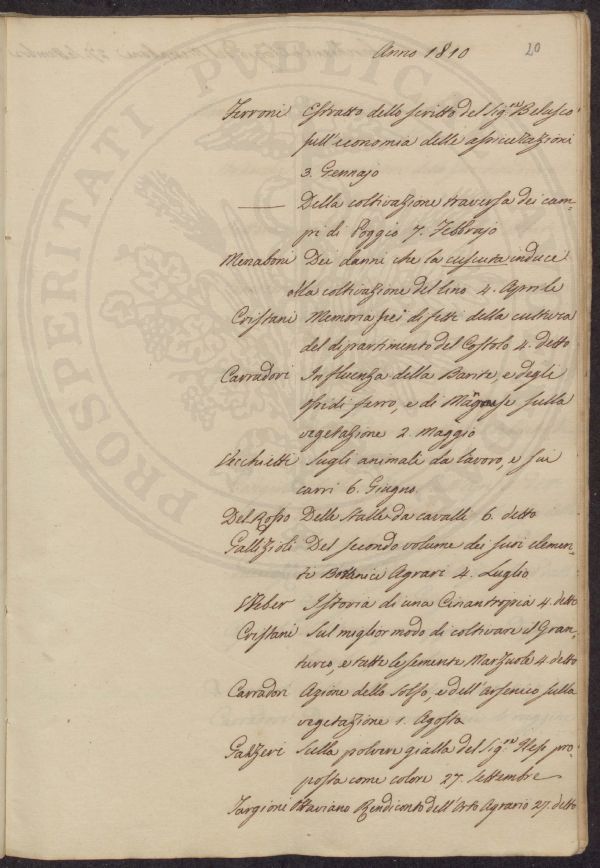 Anno 1810
20
Ferroni Estratto dello scritto del Sig.re Belusco
sull'economia delle assiccazioni
3. Gennajo
—— Della coltivazione traversa dei cam-
pi di Poggio 7. Febbrajo
Menaboni Dei danni che la cuscuta induce
alla coltivazione del lino 4. Aprile
Cristani Memoria sei difetti della cultura
del dipartimento del Costolo 4. detto
Carradori Influenza della Barite, e degli
ossidi ferro, e di Manganese sulla
vegetazione 2. Maggio
Vecchietti Sugli animali da lavoro, e sui
carri 6. Giugno
Del Rosso Delle stalle da cavalli 6. detto
Gallizioli Del secondo volume dei suoi elemen-
ti Botanici Agrari 4. Luglio
Weber Istoria di una Cinantropia 4. detto
Cristani Sul miglior modo di coltivare il Gran-
turco, e tutte le semente Marzuole 4. detto
Carradori Azione dello Solfo, e dell'Arsenico sulla
vegetazione 1. Agosto
Galzeri Sulla polvere gialla del Sig.re Hess pro-
posta come colore 27. Settembre
Targioni Ottaviano Rendiconto dell'Orto Agrario 27. detto
PROSPERITATI PUBLICAE